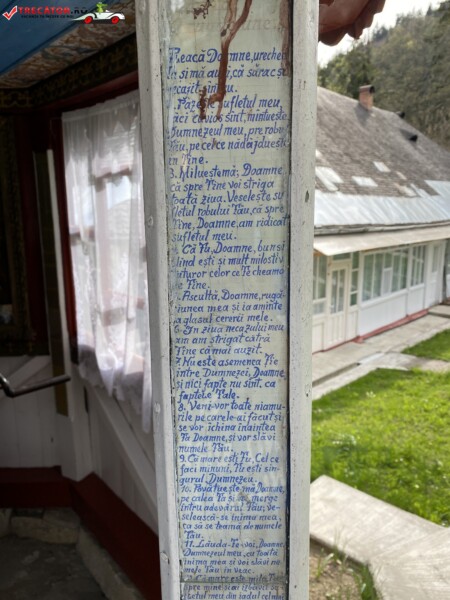 TRECATOR.RO
Pleacă Doamne, urechea
Ta și mă auzi, că sărac și
2. Păzește sufletul meu
căci cuvios sînt, mîntuiește
Dumnezeul meu, pre robul
Tău, pe cel ce nădăjduiește
în Tine.
3. Miluieștemă, Doamne,
că spre Tine voi striga
toată ziua. Veselește su-
fletul robului Tău, că spre
Tine, Doamne, am ridicat
sufletul meu.
4. Că Tu, Doamne, bun și
blînd ești și mult milostiv
tuturor celor ce Te cheamă
pe Tine.
5. Ascultă, Doamne, rugă-
ciunea mea și ia aminte
la glasul cererii mele.
6. În ziua necazului meu
am strigat către
Tine că mai auzit.
7. Nu este asemenea Ție
între Dumnezei, Doamne
și nici fapte nu sînt, ca
faptele Tale.
8. Veni-vor toate neamu-
rile pe care le-ai făcut și
se vor închina înaintea
Ta Doamne, și vor slăvi
numele Tău.
9. Că mare ești Tu, Cel ce
faci minuni, Tu ești sin-
gurul Dumnezeu.
10. Povățuiește mă, Doamne,
pe calea Ta și voi merge
întru adevărul Tău; ve-
selească-se inima mea,
ca să se teamă de numele
Tău.
11. Lăuda-Te-voi, Doamne,
Dumnezeul meu, cu toată
inima mea și voi slăvi nu-
mele Tău în veac.
12. Că mare este mila Ta
spre mine și ai izbăvit su-
fletul meu din iadul celui